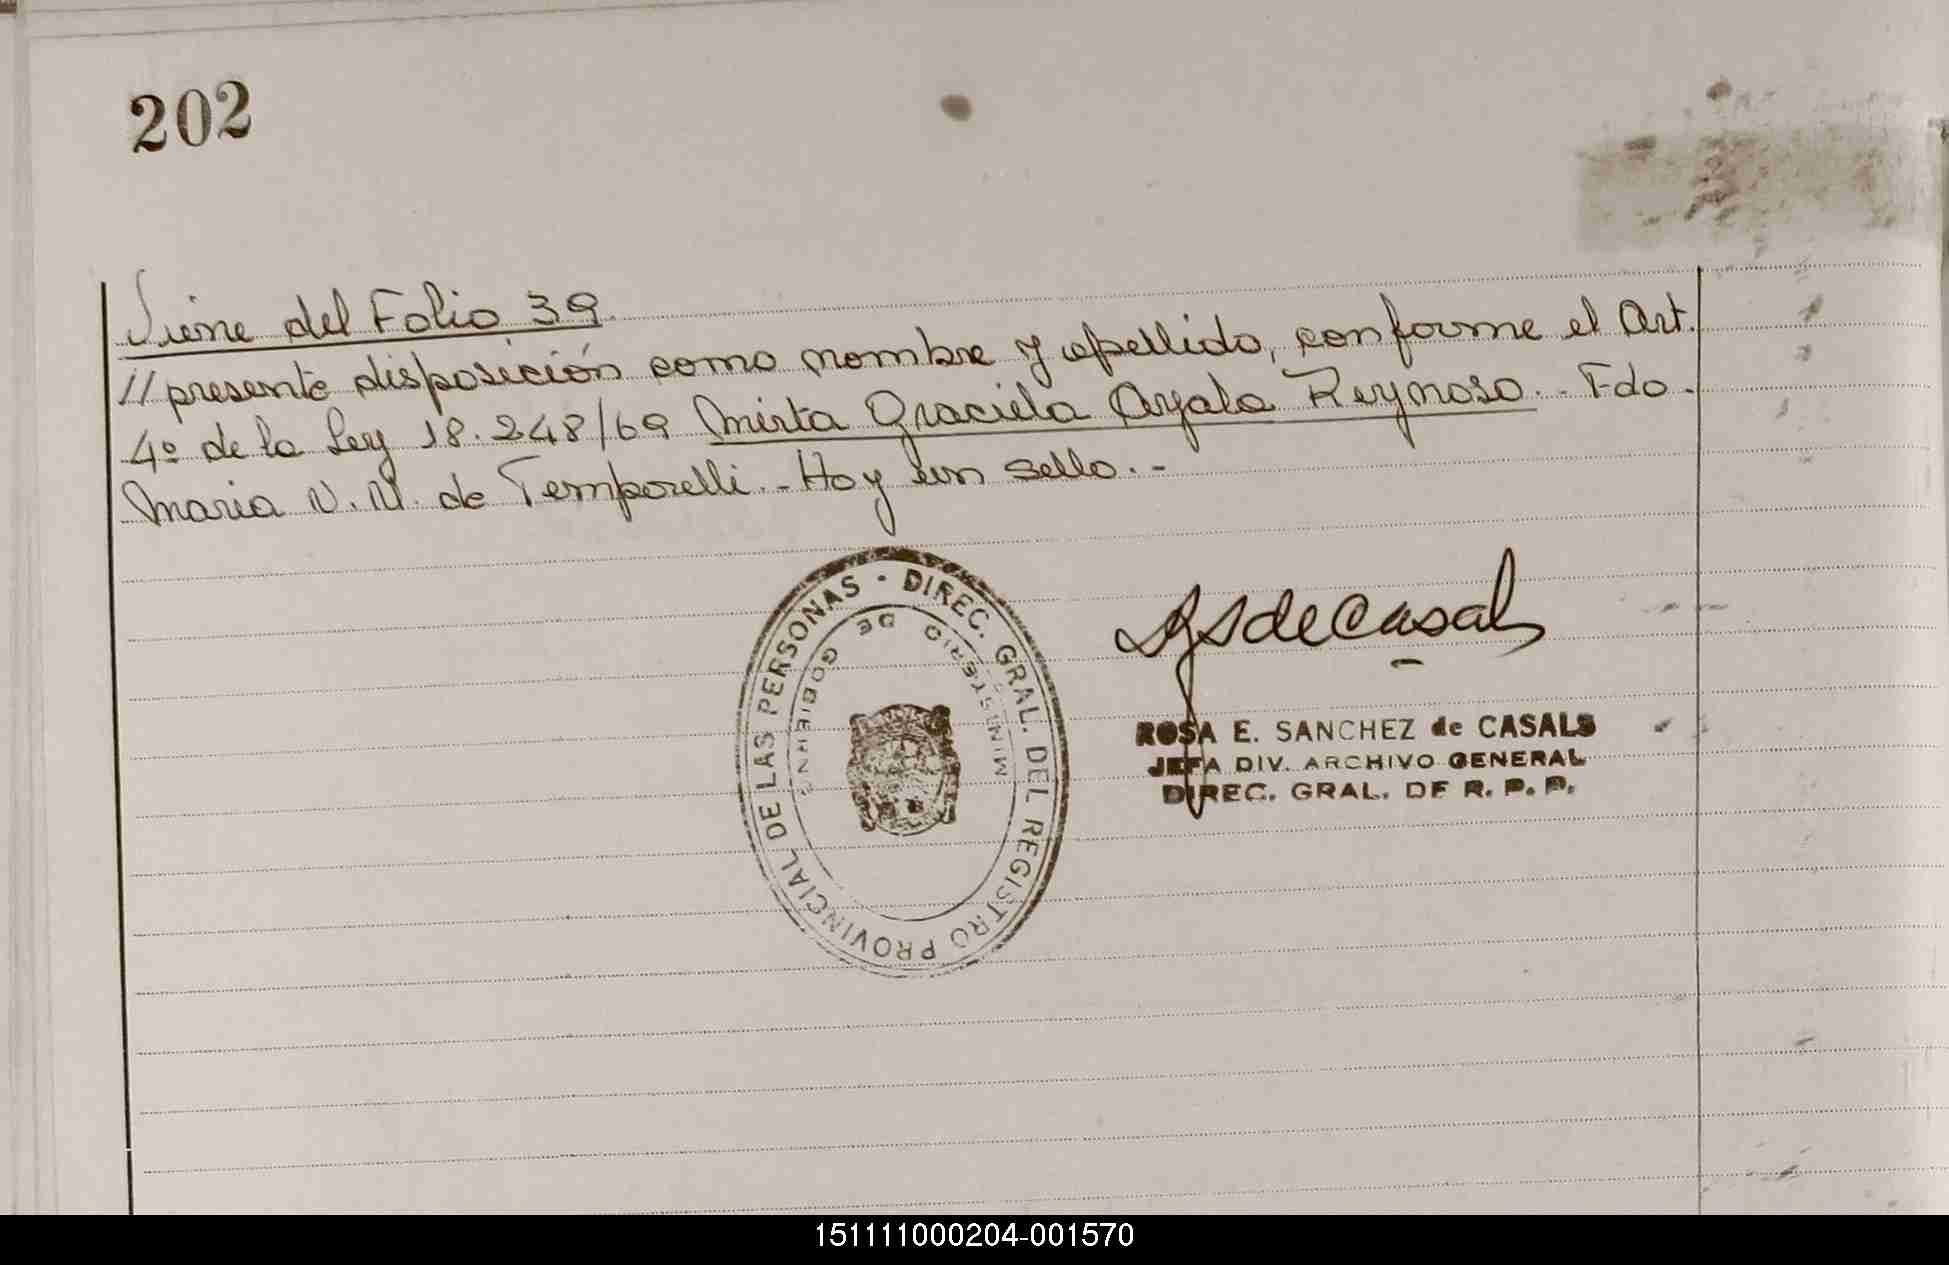 202
Viene del Folio 39.
// presente disposición como nombre y apellido, conforme el Art.
4º de la Ley 18.248/69 Mirta Graciela Ayala Reynoso.- Fdo.
Maria N. N. de Temporelli.- Hay un sello.-
DIREC. GRAL. DEL REGISTRO PROVINCIAL DE LAS PERSONAS -
MINISTERIO DE GOBIERNO
de Casals
ROSA E. SANCHEZ de CASALS
JEFA DIV. ARCHIVO GENERAL
DIREC. GRAL. DE R. P. P.
151111000204-001570